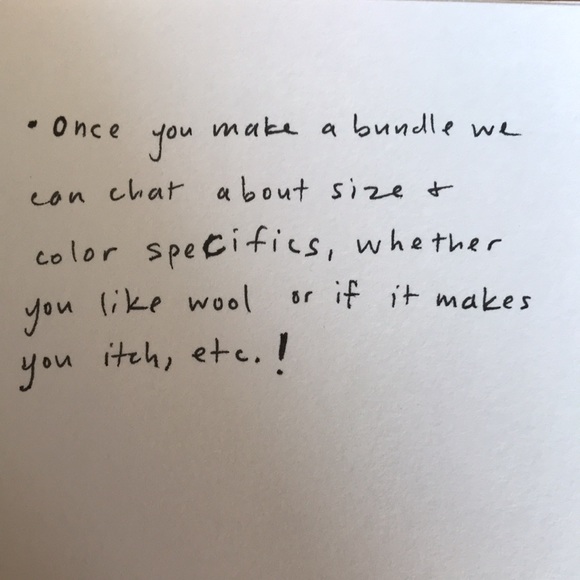 • Once you make a bundle we
can chat about size &
color specifics, whether
you like wool or if it makes
you itch, etc.!